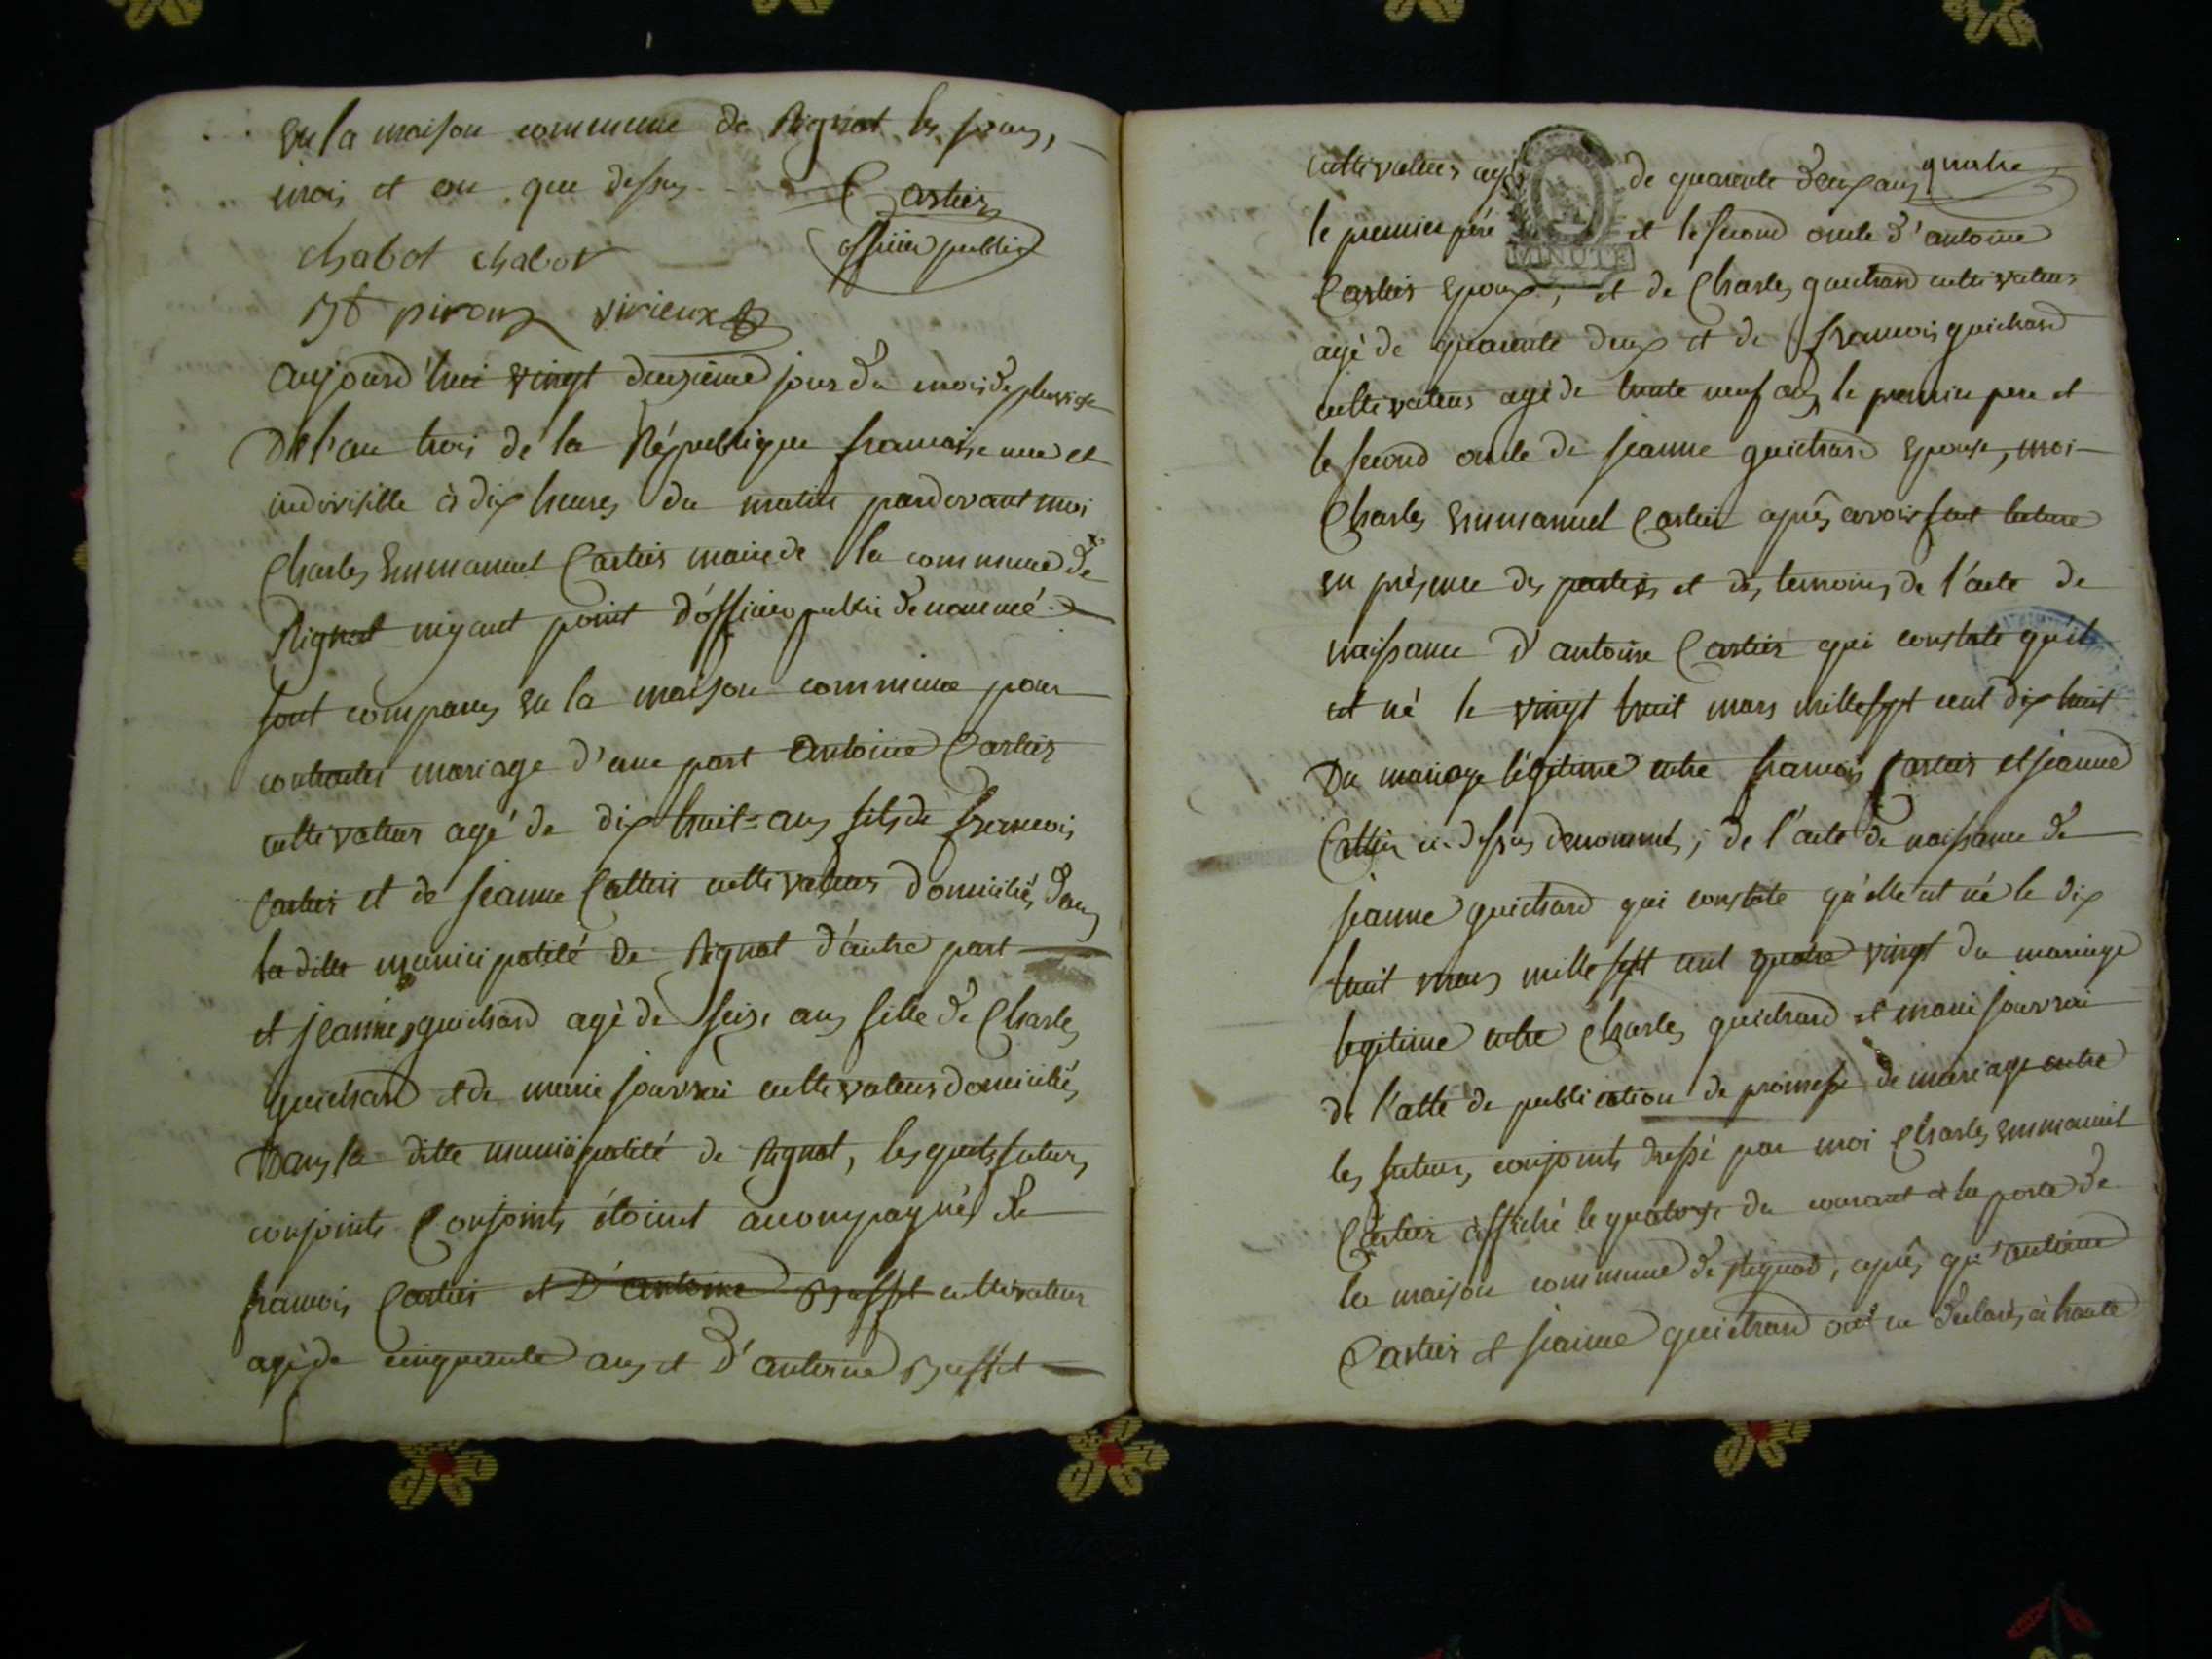 en la maison commune de Rignat les jours,
mois et an que dessus Cartier
chabot chabot officier public
piroux virieux
aujourd'hui vingt deuxieme jour du mois de pluviose
De l'an trois de la République francaise une et
indivisible à dix heures du matin pardevant moi
Charles Emmanuel Cartier maire de la commune de
Rignat niyant point d'officier public denommé
sont comparus en la maison commune pour
contracter mariage d'une part antoine Cartier
cultivateur agé de dix huit = ans fils de francois
Cartier et de jeanne Cattin cultivateurs domiciliés dans
la ditte municipalité de Rignat d'autre part
et jeanne guichard agé de seize ans fille de Charles
guichard et de marie jouvrai cultivateurs domiciliés
Dans la ditte municipalité de Rignat, lesquels futurs
conjoints Conjoints étoient acompagnés de
francois Cartier et D'antoine Buffet cultivateur
agé de cinquante ans et D'antoine Buffet
cultivateur agé de quarante deux ans quatre
le premier péré et le second oncle d'antoine
MINUTE
Cartier epoux, et de Charles guichard cultivateur
agé de quarante deux et de francois guichard
cultivateur agé de trente neuf ans le premier pere et
le second oncle de jeanne guichard epouse, moi
Charles Emmanuel Cartier après avoir fait lecture
en présence des parties et des temoins de l'acte de
naissance d'antoine Cartier qui constate quil
est né le vingt huit mars mille sept cent dix huit
Du mariage légitime entre francois Cartier et jeanne
Cattin ci-dessus denommés, de l'acte de naissance de
jeanne guichard qui constate qu'elle est né le dix
huit mars mille sept cent quatre vingt du mariage
legitime entre Charles guichard et marie jouvrai
de l'atte de publication de promesse de mariage entre
les futurs conjoints dressé par moi Charles Emmanuel
Cartier affiché le quatorze du courant à la porte de
la maison commune de Rignat, après qu'antoine
Cartier et jeanne guichard ont eu declarés à haute